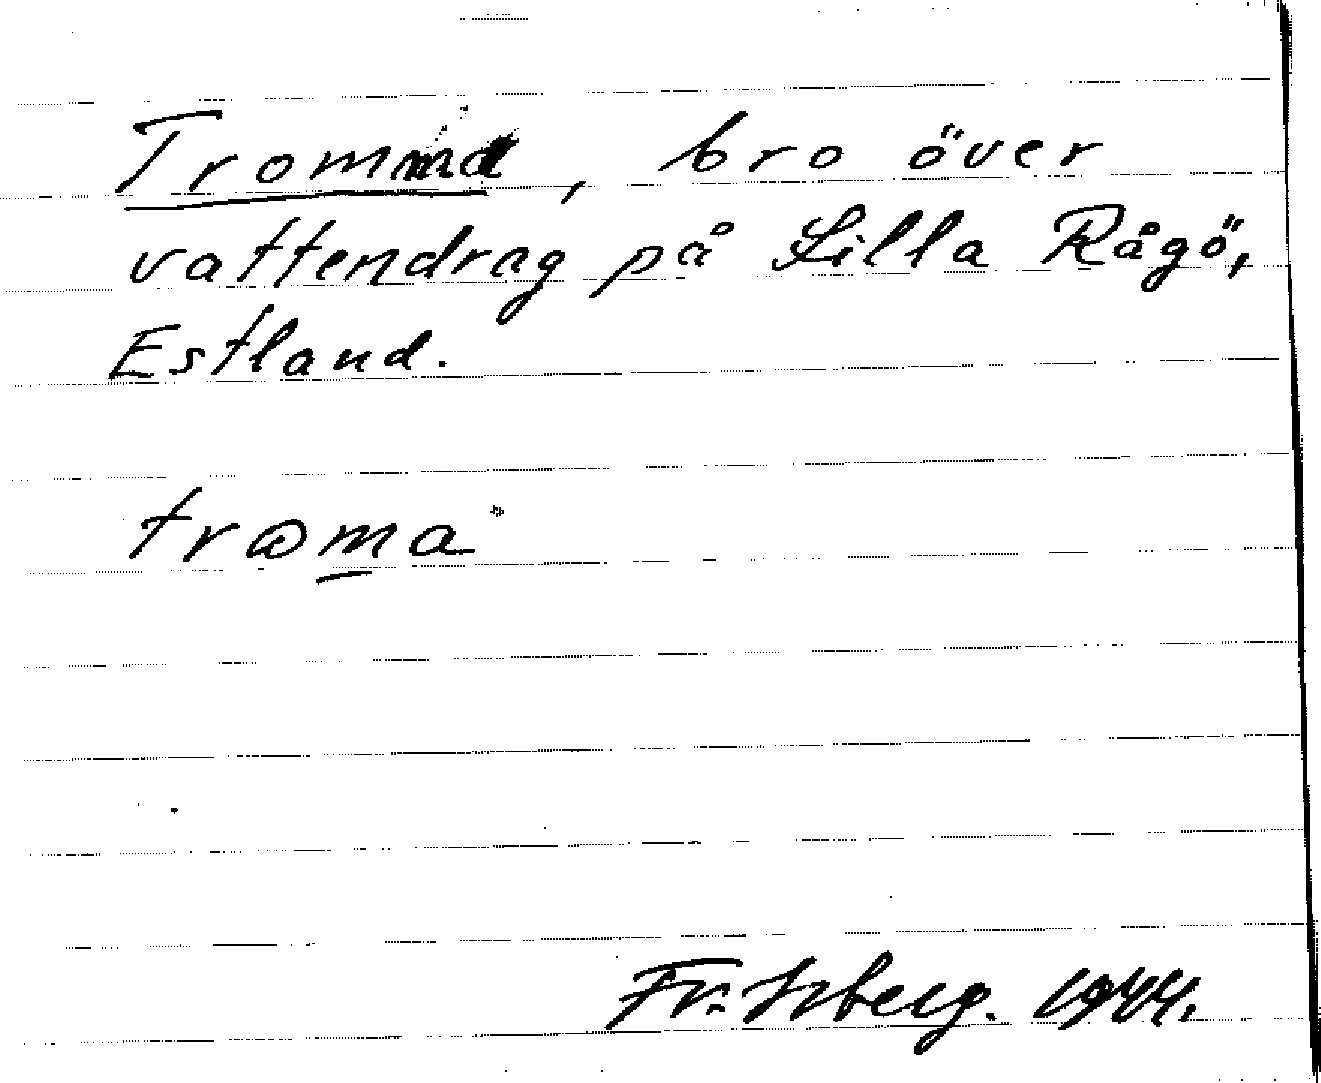 Tromma, bro över
vattendrag på Lilla Rågö,
Estland.
troma
Fr. 1944.